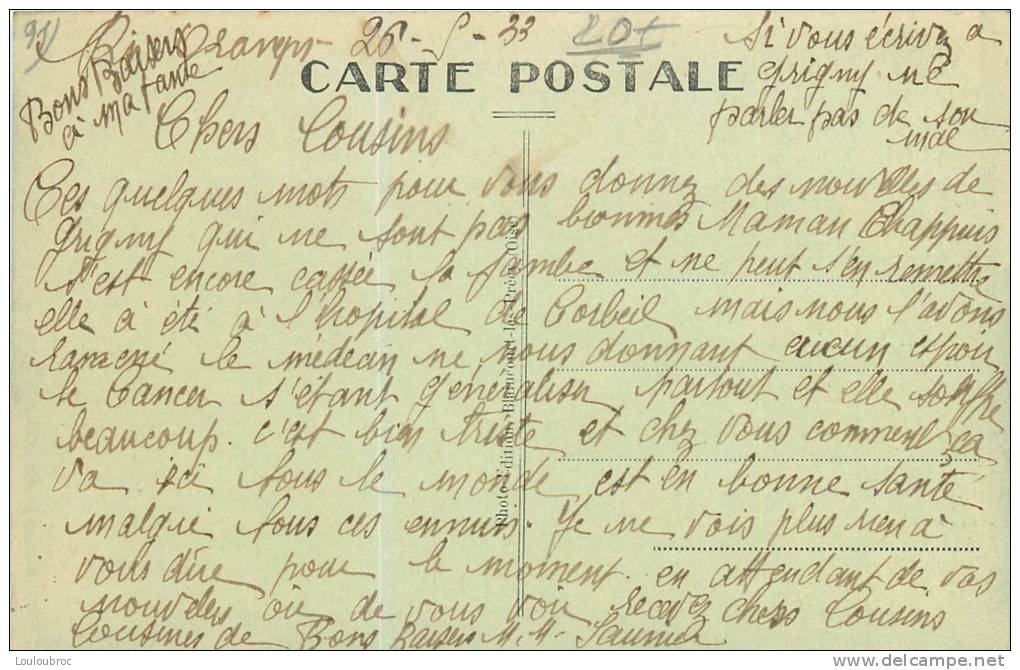 91
26-5-33
20f
Bons Baisers
à ma tante
Si vous écrivez a
Grigny ne
parler pas de son
mal
CARTE POSTALE
Chers Cousins
Ces quelques mots pour vous donnez des nouvelles de
Grigny qui ne sont pas bonnes Maman Chappuis
s'est encore cassée la jambe et ne peut s'en remettre
elle à été à l'hopital de Corbeil mais nous l'avons
ramené le médecin ne nous donnant aucun espoir
le Cancer s'étant généraliser partout et elle souffre
beaucoup. c'est bien triste et chez vous comment ça
va ici tous le monde est en bonne santé
malgré tous ces ennuis. Je ne vois plus rien à
vous dire pour le moment. en attendant de vos
nouvelles ou de vous voir recevez chers Cousins
Cousines de Bons Baisers M.M. Saunier
Photo-Edition Blaincourt-les-Précy (Oise)
Louloubroc
www.delcampe.net